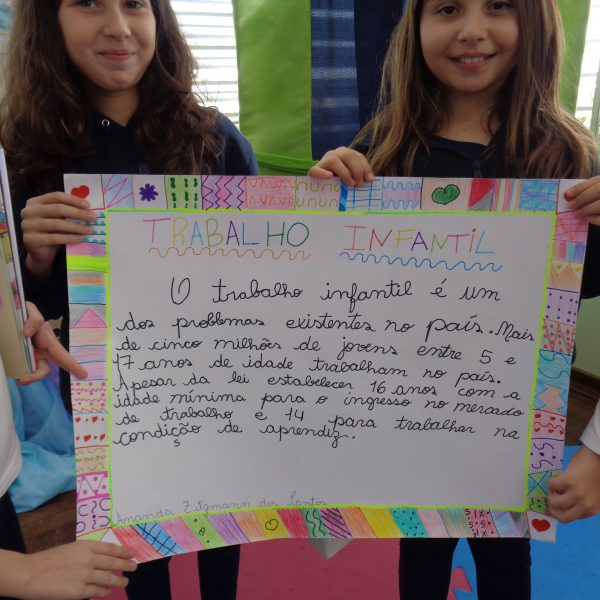 TRABALHO INFANTIL
O trabalho infantil é um
dos problemas existentes no país. Mais
de cinco milhões de jovens entre 5 e
17 anos de idade trabalham no país.
Apesar da lei estabelecer 16 anos com a
idade mínima para o ingresso no mercado
de trabalho e 14 para trabalhar na
condição de aprendiz.
s
Amanda Zitzmann dos Santos